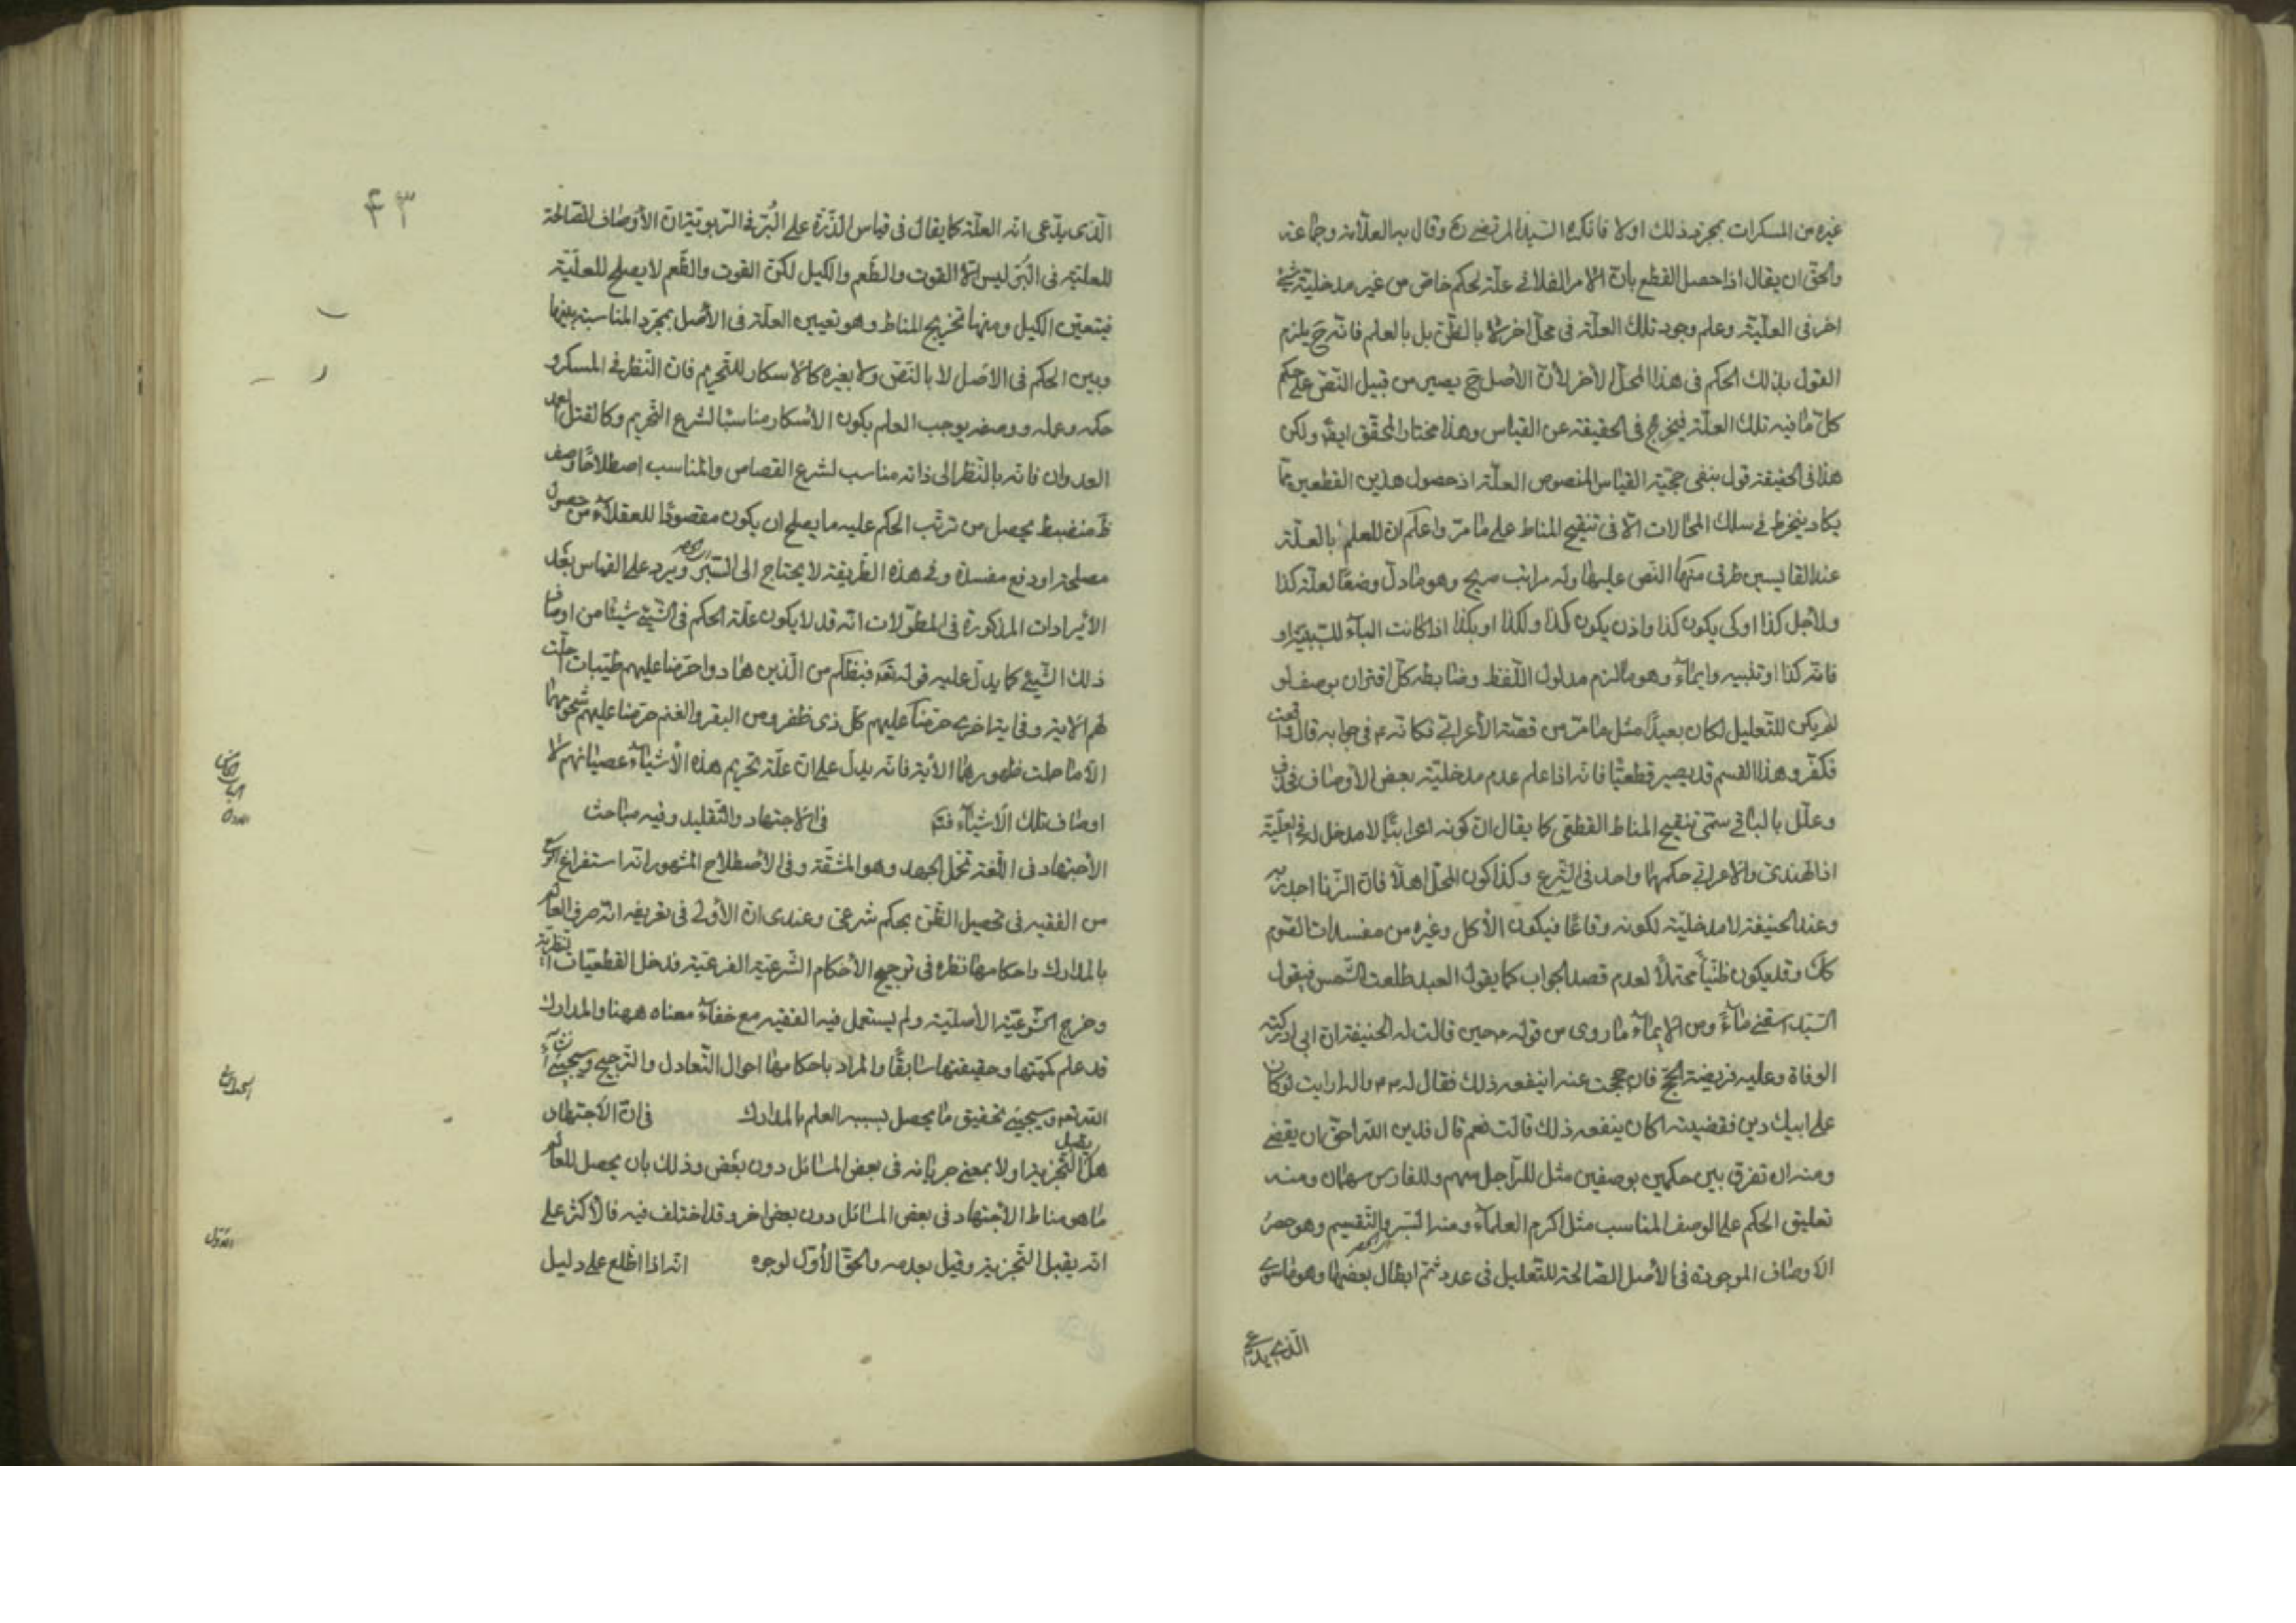 غيره من المسكرات بمجرد ذلك اولا فانكره السيد المرتضى ره وقال به العلامة وجماعة
والحق ان يقال اذا حصل القطع بان الامر الفلانى علة لحكم خاص من غير مدخلية شئ
اخر فى العلية وعلم وجود تلك العلة فى محل اخر لا بالظن بل بالعلم فانه ح يلزم
القول بذلك الحكم فى هذا المحل الاخر لان الاصل ح يصير من قبيل النص على حكم
كل ما فيه تلك العلة فيخرج فى الحقيقة عن القياس وهذا مختار المحقق ايضا ولكن
هذا فى الحقيقة قول بنفى حجية القياس المنصوص العلة اذ حصول هذين القطعين مما
يكاد ينخرط فى سلك المحالات الا فى تنقيح المناط على ما مر واعلم ان للعلم بالعلة
عند القايسين طرق منها النص عليها وله مراتب صريح وهو ما دل وضعا لعلة كذا
ولاجل كذا او كى يكون كذا واذن يكون كذا ولكذا او بكذا اذا كانت الباء للسببية او
فانه كذا او تنبيه وايماء وهو ما لزم مدلول اللفظ وضابطه كل اقتران بوصف لو
لم يكن للتعليل لكان بعيدا مثل ما مر من قصة الاعرابى فكانه ع فى جوابه قال واقعت
فكفر وهذا القسم قد يصير قطعيا فانه اذا علم عدم مدخلية بعض الاوصاف فحذف
وعلل بالباقى سمى تنقيح المناط القطعى كما يقال ان كونه اعرابيا لا مدخل له فى العلية
اذ الهندى والاعرابى حكمهما واحد فى الشرع وكذا كون المحل اهلا فان الزنا اجدر به
وعند الحنيفة لا مدخلية لكونه وقاعا فيكون الاكل وغيره من مفسدات الصوم
كك وقد يكون ظنيا محتملا لعدم قصد الجواب كما يقول العبد طلعت الشمس فيقول
السيد اسقنى ماء ومن الايماء ما روى من قوله ص حين قالت له الخثعمية ان ابى ادركته
الوفاة وعليه فريضة الحج فان حججت عنه اينفعه ذلك فقال له ص ارايت لو كان
على ابيك دين فقضيته اكان ينفعه ذلك قالت نعم قال فدين الله احق ان يقضى
ومنه ان تفرق بين حكمين بوصفين مثل للراجل سهم وللفارس سهمان ومنه
تعليق الحكم على الوصف المناسب مثل اكرم العلماء ومنه السبر والتقسيم وهو حصر
الاوصاف الموجودة فى الاصل الصالحة للتعليل فى عدد ثم ابطال بعضها وهو ما سوى
الذى يدعى
٤٣
الذى يدعى انه العلة كما يقال فى قياس الذرة على البر فى الربوية ان الاوصاف الصالحة
للعلية فى البر ليس الا القوت والطعم والكيل لكن القوت والطعم لا يصلح للعلية
فيتعين الكيل ومنها تخريج المناط وهو تعيين العلة فى الاصل بمجرد المناسبة بينها
وبين الحكم فى الاصل لا بالنص ولا بغيره كالاسكار للتحريم فان النظر فى المسكر و
حكمه وعلله ووصفه يوجب العلم بكون الاسكار مناسبا لشرع التحريم وكالقتل العمد
العدوان فانه بالنظر الى ذاته مناسب لشرع القصاص والمناسب اصطلاحا وصف
ظ منضبط يحصل من ترتب الحكم عليه ما يصلح ان يكون مقصودا للعقلاء من حصول
مصلحة او دفع مفسدة وفى هذه الطريقة لا يحتاج الى السبر ويرد على القياس بعد
الايرادات المذكورة فى المطولات انه قد لا يكون علة الحكم فى الشئ شيئا من اوصاف
ذلك الشئ كما يدل عليه قوله تعه فبظلم من الذين هادوا حرمنا عليهم طيبات احلت
لهم الاية وفى اية اخرى حرمنا عليهم كل ذى ظفر ومن البقر والغنم حرمنا عليهم شحومهما
الا ما حملت ظهورهما الاية فانه يدل على ان علة تحريم هذه الاشياء عصيانهم لا
اوصاف تلك الاشياء فتم فى الاجتهاد والتقليد وفيه مباحث
الاجتهاد فى اللغة تحمل الجهد وهو المشقة وفى الاصطلاح المشهور انه استفراغ الوسع
من الفقيه فى تحصيل الظن بحكم شرعى وعندى ان الاولى فى تعريفه انه صرف العالم
بالمدارك واحكامها نظره فى ترجيح الاحكام الشرعية الفرعية فدخل القطعيات النظرية
وخرج الشرعية الاصلية ولم يستعمل فيه الفقيه مع خفاء معناه ههنا والمدارك
قد علم كميتها وحقيقتها سابقا والمراد باحكامها احوال التعادل والترجيح وسيجئ ان شاء
الله تعه وسيجئ تحقيق ما يحصل بسببه العلم بالمدارك فى ان الاجتهاد
هل يقبل التجزية اولا بمعنى جريانه فى بعض المسائل دون بعض وذلك بان يحصل للعالم
ما هو مناط الاجتهاد فى بعض المسائل دون بعض اخر وقد اختلف فيه فالاكثر على
انه يقبل التجزية وقيل بعدمه والحق الاول لوجوه انه اذا اطلع على دليل
الاول